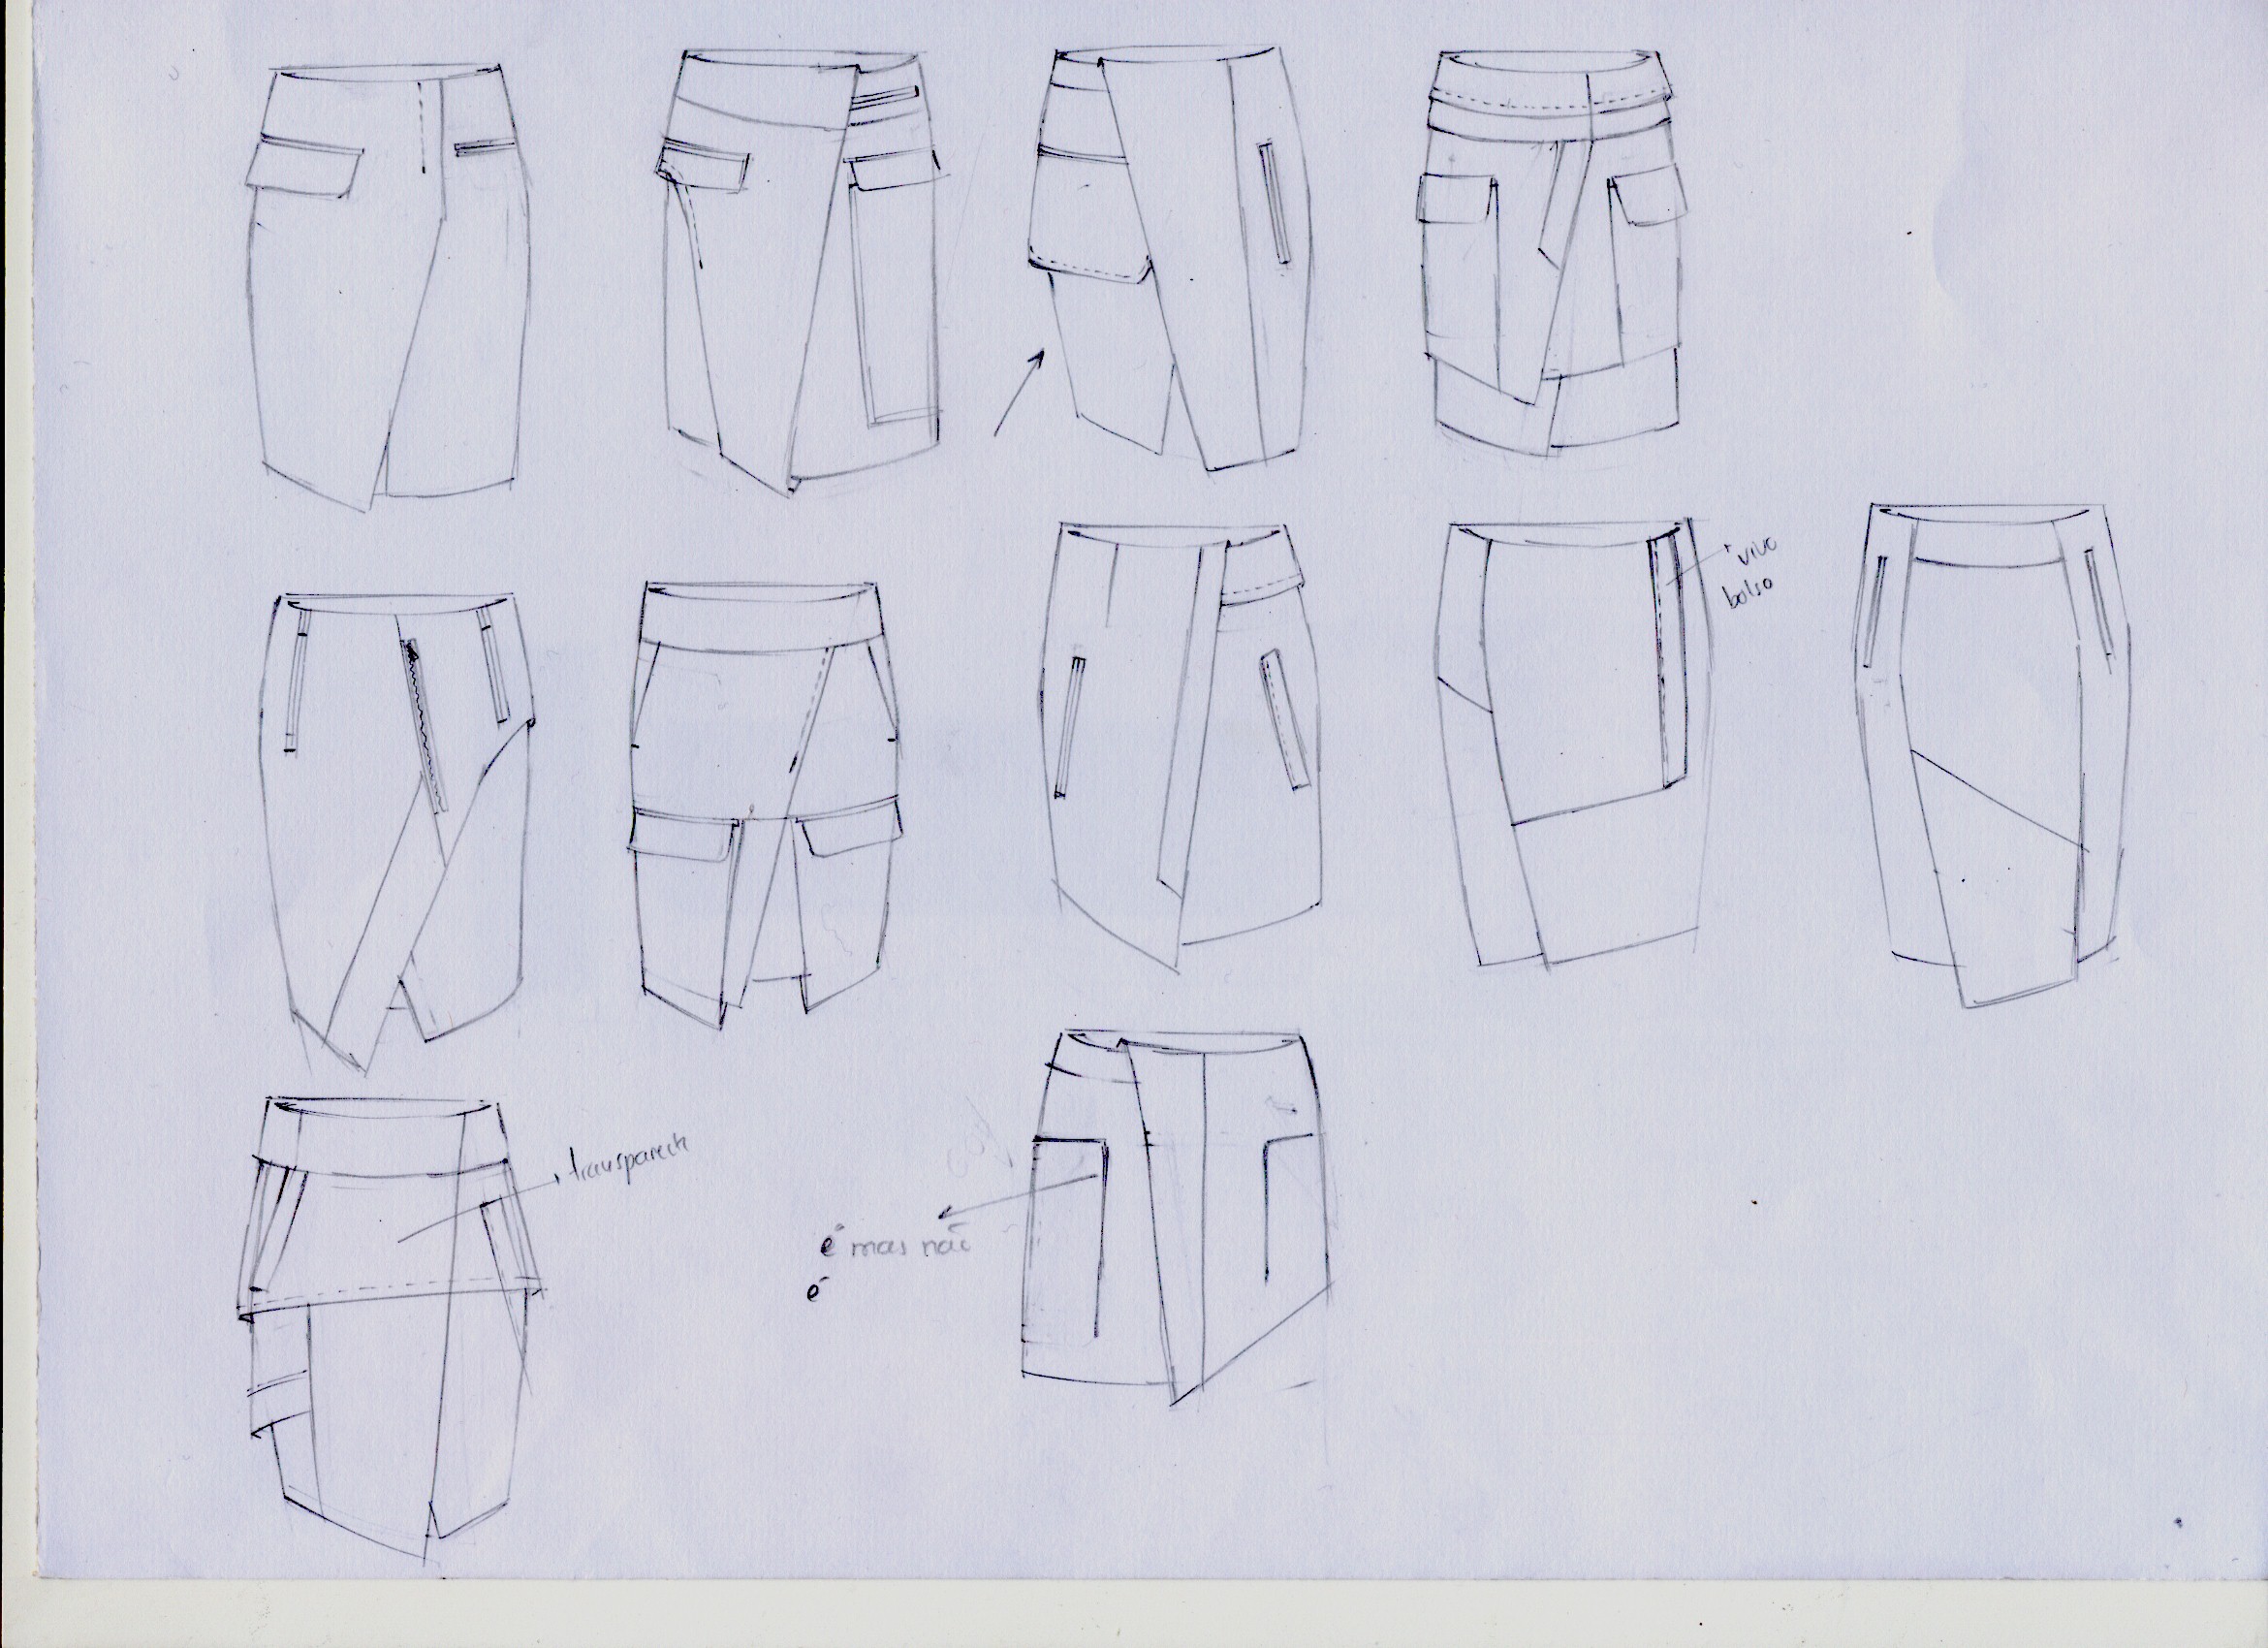 vivo
bolso
transparente
é mas não
é